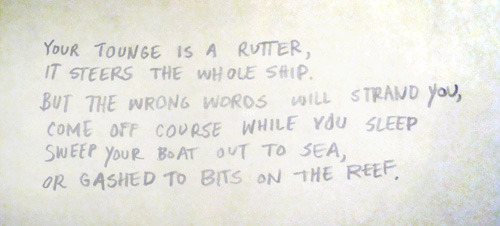 YOUR TOUNGE IS A RUTTER,
IT STEERS THE WHOLE SHIP.
BUT THE WRONG WORDS WILL STRAND YOU,
COME OFF COURSE WHILE YOU SLEEP
SWEEP YOUR BOAT OUT TO SEA,
OR GASHED TO BITS ON THE REEF.